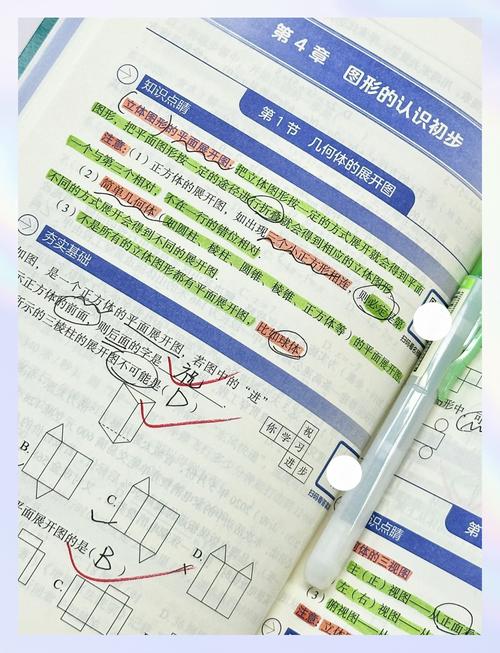 第4章 图形的认识初步
第1节 几何体的展开图
知识点睛
立体图形的平面展开图:把立体图形按一定的方式展开就会得到平面
图形,把平面图形按一定的途径进行折叠就会得到相应的立体图形.
注意:(1)正方体的展开图,如出现三个小正方形相连,则必定是第
一个与第三个相对,不在一行的错位相对.
(2)简单几何体(如圆柱、棱柱、圆锥、棱锥、正方体等)的平面展开图,
不同的方式展开会得到不同的展开图.
(3)不是所有的立体图形都有平面展开图,比如球体.
夯实基础
如图,是一个正方体的平面展开图,若图中的“进”
示正方体的前面,则后面的字是 祝
所示的三棱柱的展开图不可能是( D )
祝
你 学 习
进 步
B.
C.
D.
平面展开图的是( B )
C.
D.
扫码看
扫码看
图形中,可
识点睛
体的三视图
主(正)视图——从正面看
左(右)视图——从
(3)俯视图——从
注意: